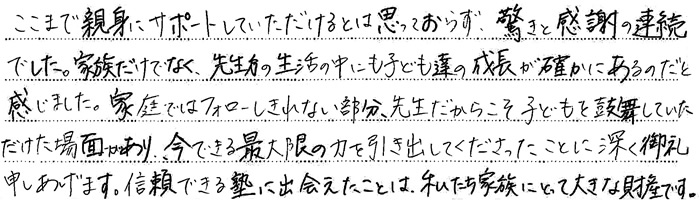 ここまで親身にサポートしていただけるとは思っておらず、驚きと感謝の連続
でした。家族だけでなく、先生方の生活の中にも子ども達の成長が確かにあるのだと
感じました。家庭ではフォローしきれない部分、先生だからこそ子どもを鼓舞していた
だけた場面があり、今できる最大限の力を引き出してくださったことに深く御礼
申しあげます。信頼できる塾に出会えたことは、私たち家族にとって大きな財産です。